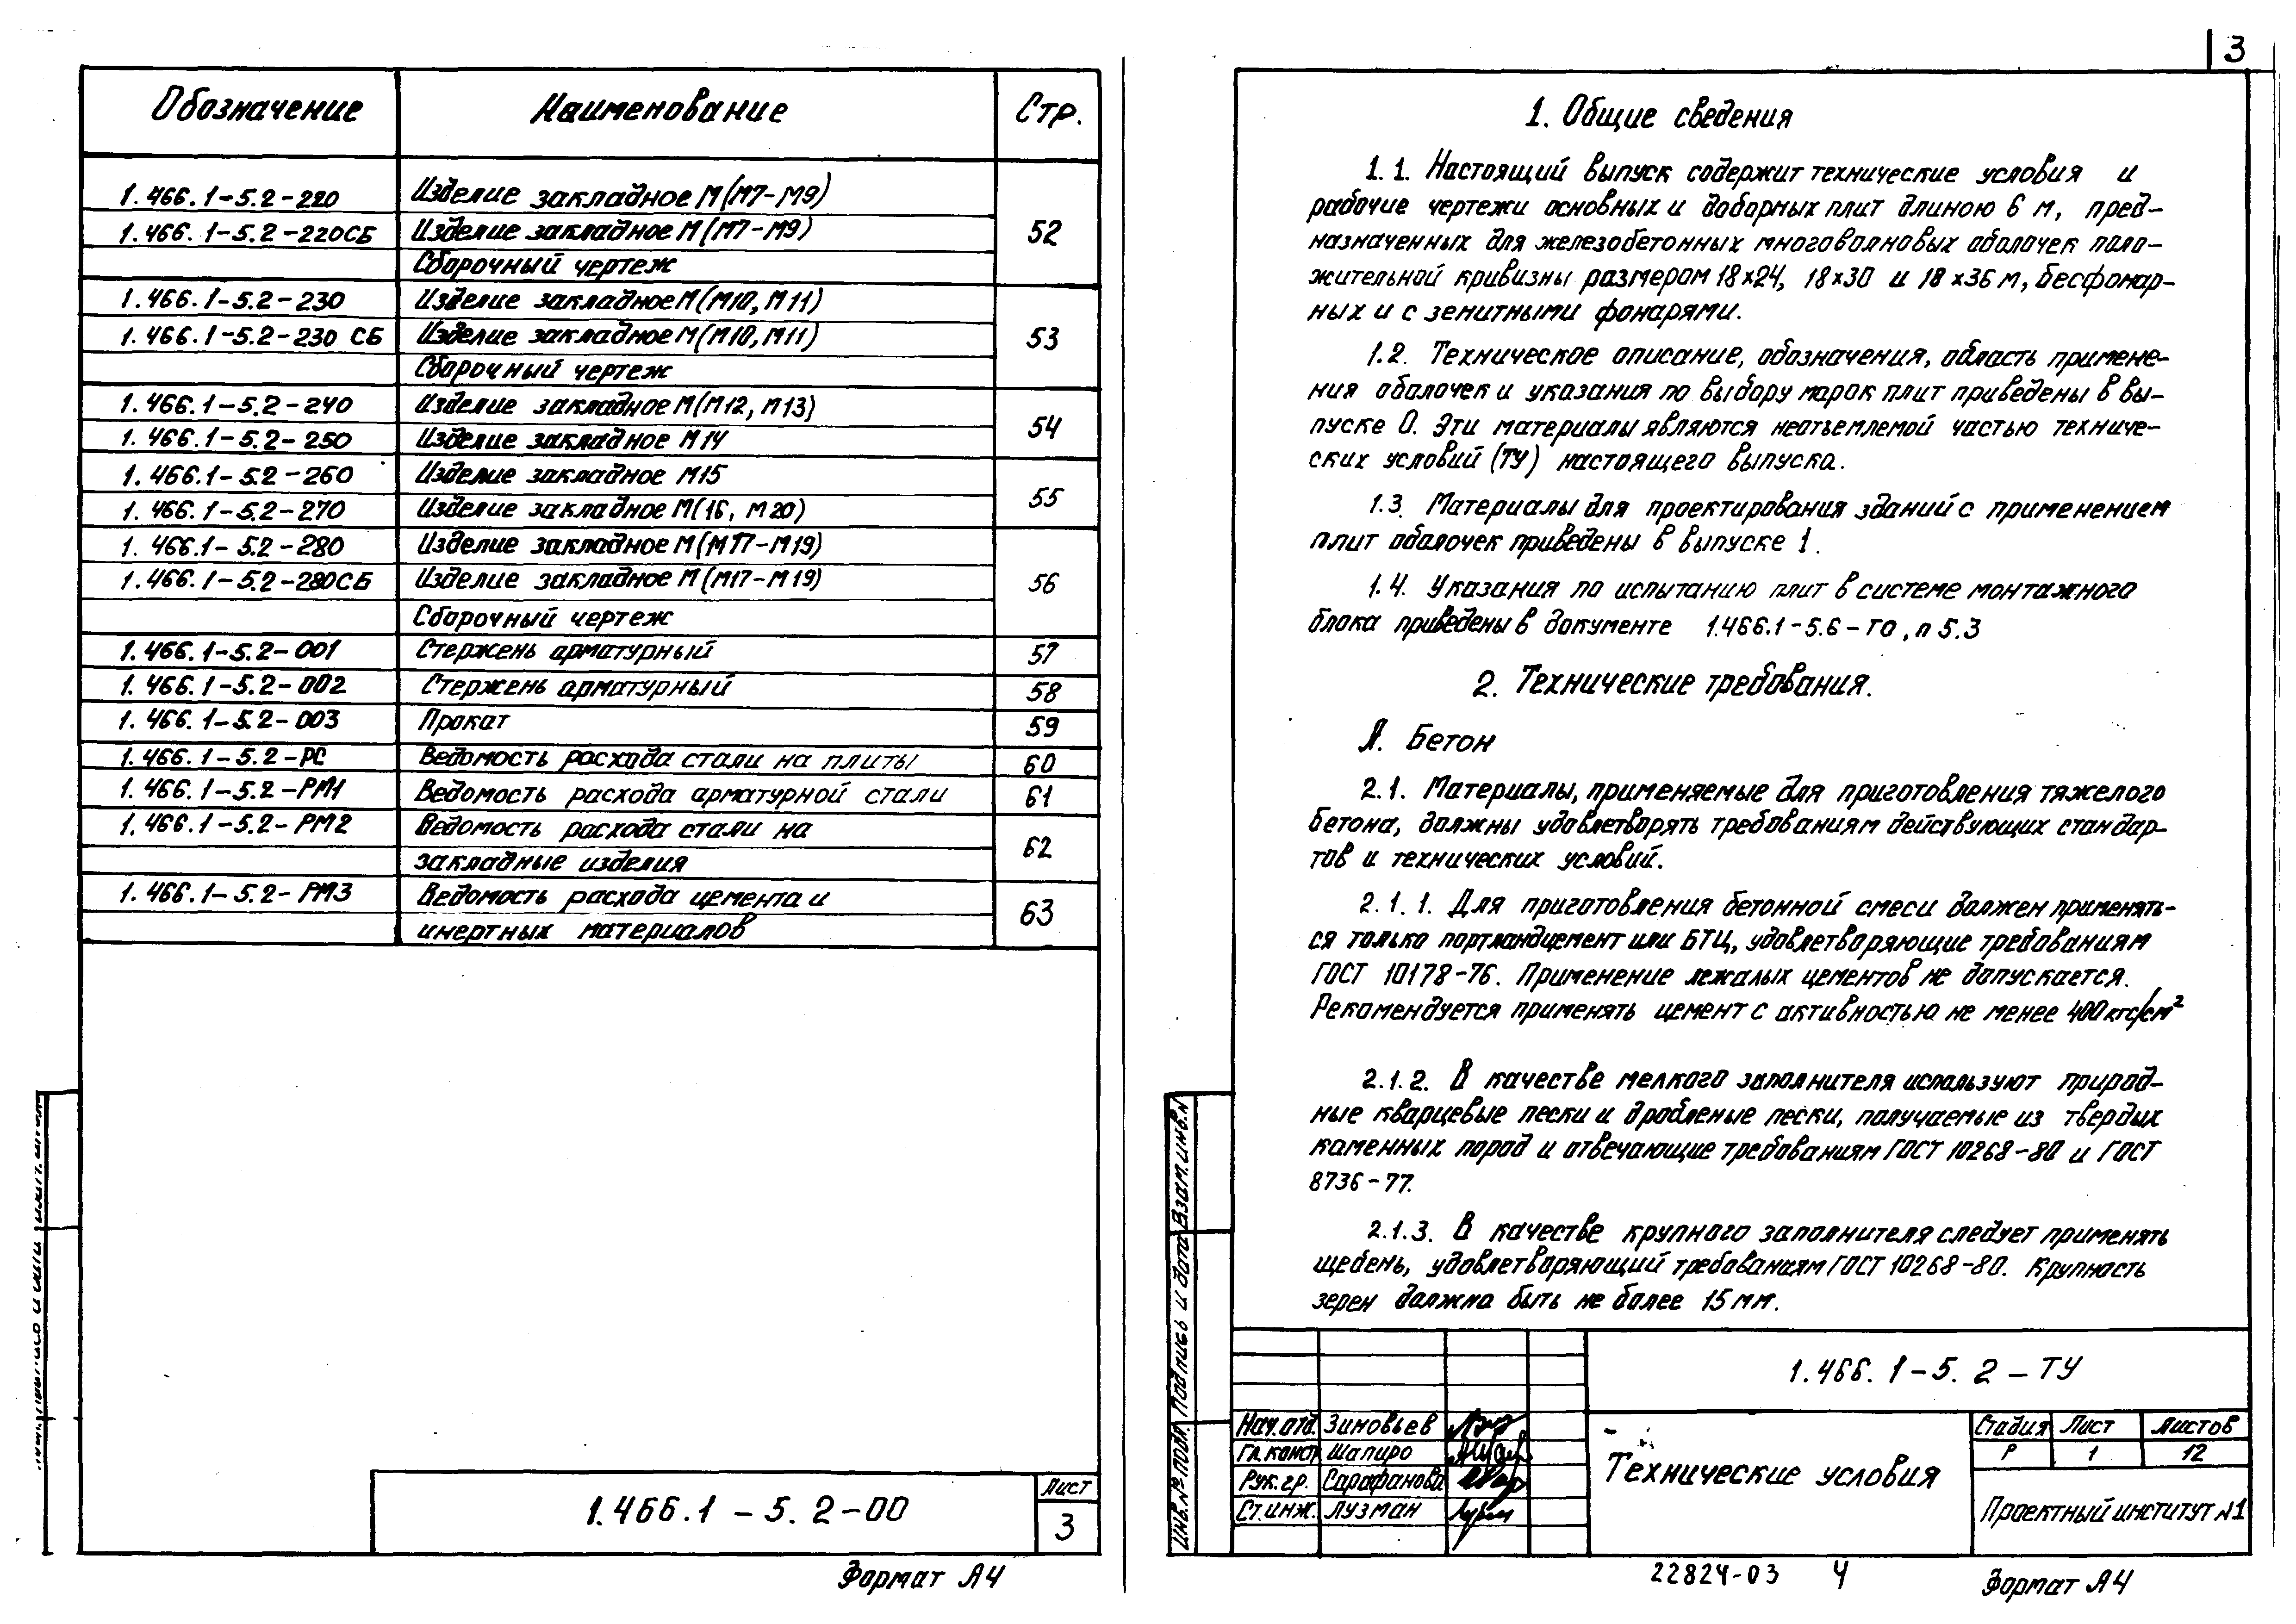 Обозначение Наименование Стр.
1.466.1-5.2-220 Изделие закладное М(М7-М9)
1.466.1-5.2-220СБ Изделие закладное М(М7-М9) 52
Сборочный чертеж
1.466.1-5.2-230 Изделие закладное М(М10, М11)
1.466.1-5.2-230 СБ Изделие закладное М(М10, М11) 53
Сборочный чертеж
1.466.1-5.2-240 Изделие закладное М(М12, М13) 54
1.466.1-5.2-250 Изделие закладное М14
1.466.1-5.2-260 Изделие закладное М15 55
1.466.1-5.2-270 Изделие закладное М(16, М20)
1.466.1-5.2-280 Изделие закладное М(М17-М19)
1.466.1-5.2-280СБ Изделие закладное М(М17-М19) 56
Сборочный чертеж
1.466.1-5.2-001 Стержень арматурный 57
1.466.1-5.2-002 Стержень арматурный 58
1.466.1-5.2-003 Прокат 59
1.466.1-5.2-РС Ведомость расхода стали на плиты 60
1.466.1-5.2-РМ1 Ведомость расхода арматурной стали 61
1.466.1-5.2-РМ2 Ведомость расхода стали на 62
закладные изделия
1.466.1-5.2-РМ3 Ведомость расхода цемента и 63
инертных материалов
1.466.1-5.2-00
Лист
3
Формат А4
3
1. Общие сведения
1.1. Настоящий выпуск содержит технические условия и
рабочие чертежи основных и доборных плит длиною 6 м, пред-
назначенных для железобетонных многоволновых оболочек поло-
жительной кривизны размером 18×24, 18×30 и 18×36 м, бесфонар-
ных и с зенитными фонарями.
1.2. Техническое описание, обозначения, область примене-
ния оболочек и указания по выбору марок плит приведены в вы-
пуске 0. Эти материалы являются неотъемлемой частью техниче-
ских условий (ТУ) настоящего выпуска.
1.3. Материалы для проектирования зданий с применением
плит оболочек приведены в выпуске 1.
1.4. Указания по испытанию плит в системе монтажного
блока приведены в документе 1.466.1-5.6-ТО, п 5.3
2. Технические требования.
А. Бетон
2.1. Материалы, применяемые для приготовления тяжелого
бетона, должны удовлетворять требованиям действующих стандар-
тов и технических условий.
2.1.1. Для приготовления бетонной смеси должен применять-
ся только портландцемент или БТЦ, удовлетворяющие требованиям
ГОСТ 10178-76. Применение лежалых цементов не допускается.
Рекомендуется применять цемент с активностью не менее 400 кгс/см²
2.1.2. В качестве мелкого заполнителя используют природ-
ные кварцевые пески и дробленые пески, получаемые из твердых
каменных пород и отвечающие требованиям ГОСТ 10268-80 и ГОСТ
8736-77.
2.1.3. В качестве крупного заполнителя следует применять
щебень, удовлетворяющий требованиям ГОСТ 10268-80. Крупность
зерен должна быть не более 15 мм.
Инв.№ подл. Подпись и дата Взам.инв.N
1.466.1-5.2-ТУ
Нач.отд. Зиновьев
Гл.констр Шапиро
Рук.гр. Сарафанова
Ст.инж. Лузман
Технические условия
Стадия Лист Листов
Р 1 12
Проектный институт №1
22824-03 4
Формат А4